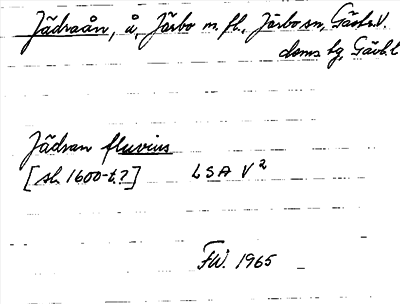 Jädraån, å, Järbo m. fl., Järbo sn, Gästr. V.
doms hg, Gävb. l
Jädran fluvius
[sl. 1600-t.?] LSA V²
F.W. 1965